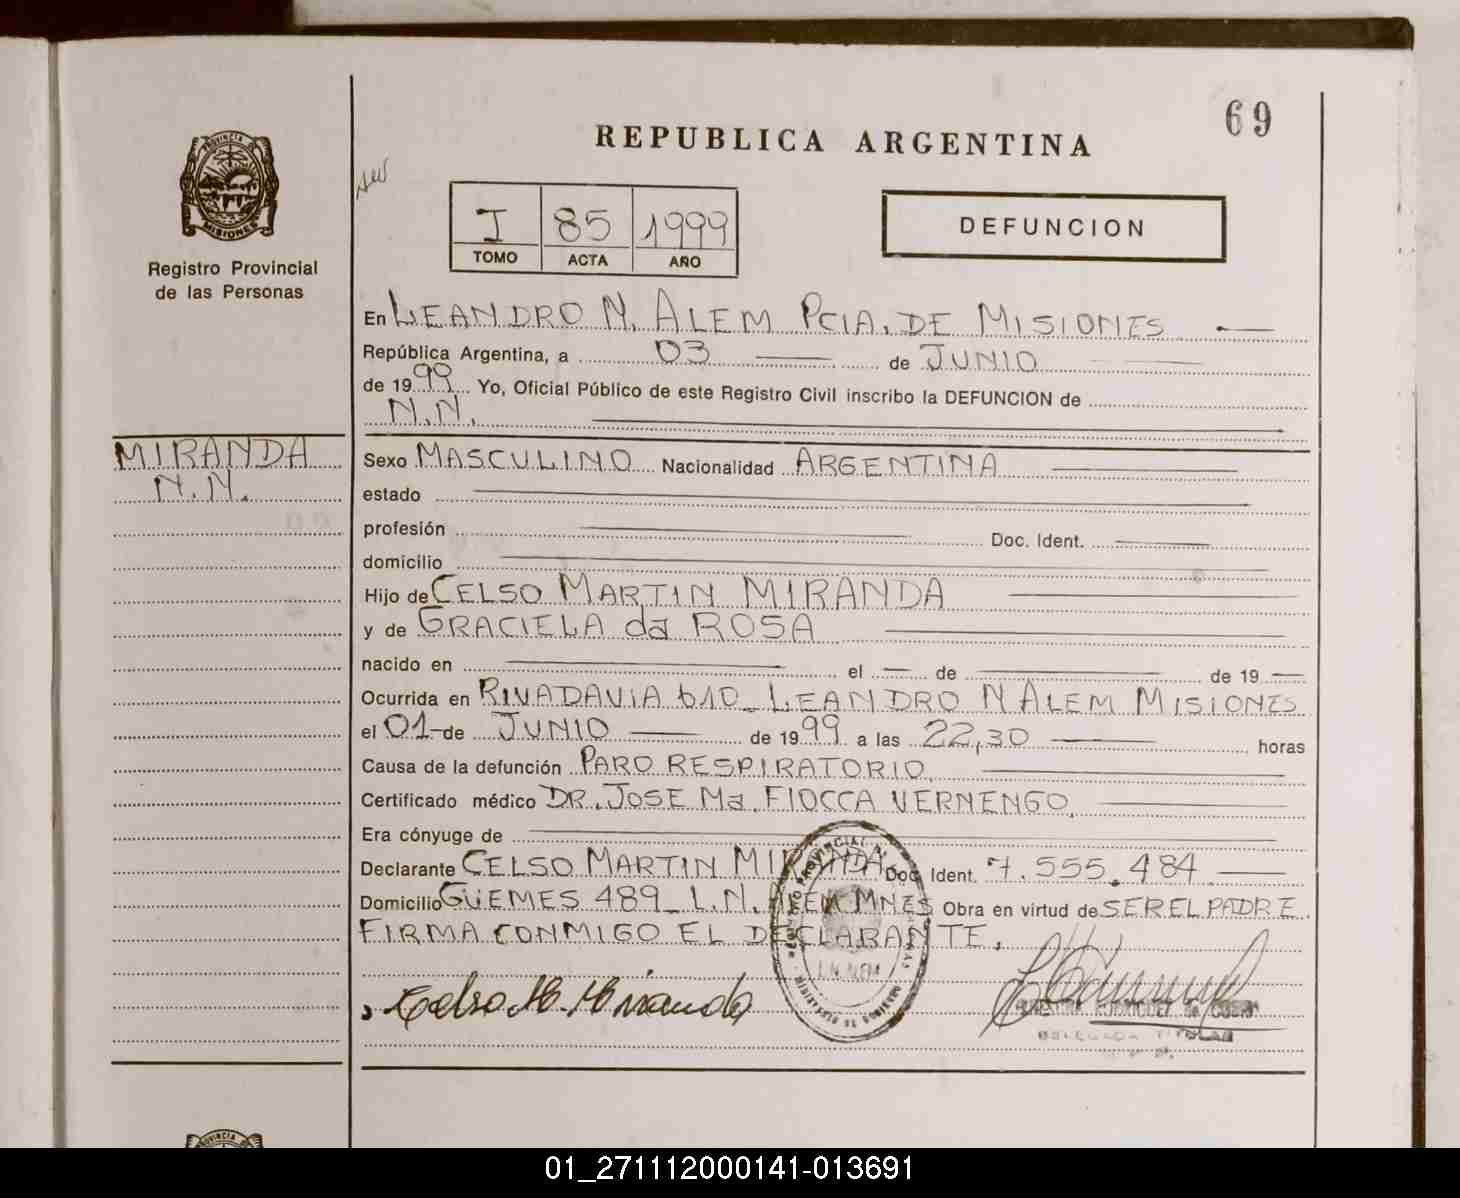 69
REPUBLICA ARGENTINA
PROVINCIA DE
MISIONES
Registro Provincial
de las Personas
I 85 1999
TOMO ACTA AÑO
DEFUNCION
En LEANDRO N. ALEM PCIA. DE MISIONES
República Argentina, a 03 de JUNIO
de 1999 Yo, Oficial Público de este Registro Civil inscribo la DEFUNCION de
N.N.
MIRANDA
N.N.
Sexo MASCULINO Nacionalidad ARGENTINA
estado
profesión Doc. Ident.
domicilio
Hijo de CELSO MARTIN MIRANDA
y de GRACIELA da ROSA
nacido en el de de 19
Ocurrida en RIVADAVIA 610_ LEANDRO N ALEM MISIONES
el 01-de JUNIO de 1999 a las 22,30 horas
Causa de la defunción PARO RESPIRATORIO.
Certificado médico DR. JOSE Ma. FIOCCA VERNENGO.
Era cónyuge de
Declarante CELSO MARTIN MIRANDA Doc. Ident. 7.555.484
Domicilio GÜEMES 489_ L.N. ALEM MNES Obra en virtud de SER EL PADRE.
FIRMA CONMIGO EL DECLARANTE.
L.N. ALEM
Celso M. Miranda
RODRIGUEZ de
DELEGADA TITULAR
01_271112000141-013691